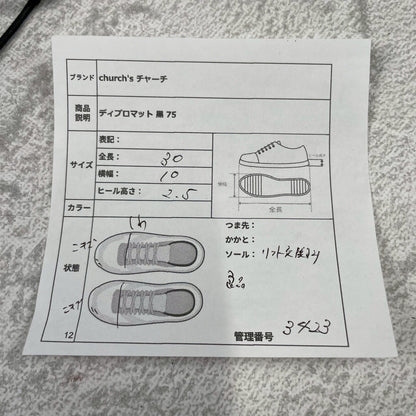 ブランド church's チャーチ
商品説明 ディプロマット 黒 75
サイズ
表記：
全長： 30
横幅： 10
ヒール高さ： 2.5
ヒール高さ
横幅
全長
カラー
状態
つま先：
かかと：
ソール： リフト交換済
12
管理番号 3423